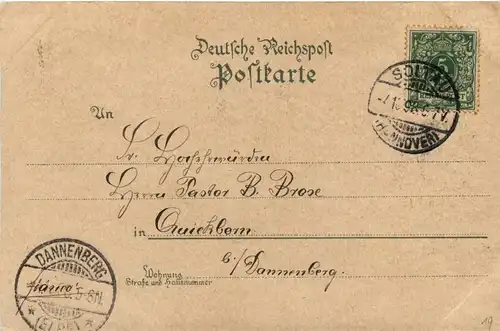 Deutsche Reichspost
Postkarte
SOLTAU
(HANNOVER)
5
An
Sr. Hochehrwürden
Herrn Pastor B. Brose
in Quickborn
b/Dannenberg.
Wohnung
Straße und Hausnummer
DANNENBERG
5-6N.
* (ELBE) *
19